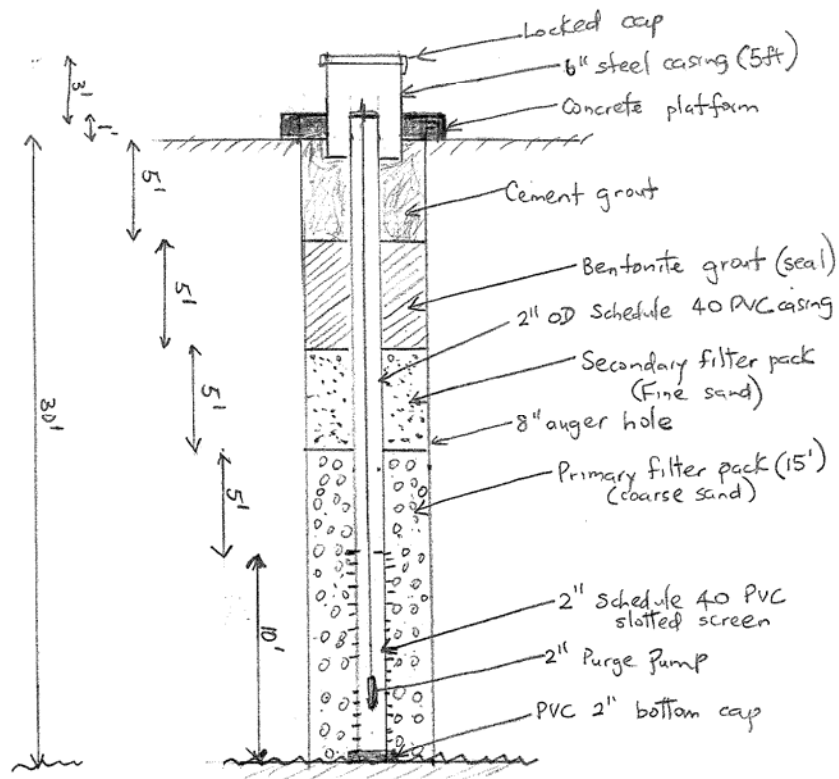 Locked cap
6" steel casing (5ft)
Concrete platform
3'
1'
5'
Cement grout
Bentonite grout (seal)
5'
2" OD Schedule 40 PVC casing
Secondary filter pack
(Fine sand)
5'
8" auger hole
30'
Primary filter pack (15')
(coarse sand)
5'
2" Schedule 40 PVC
slotted screen
10'
2" Purge Pump
PVC 2" bottom cap